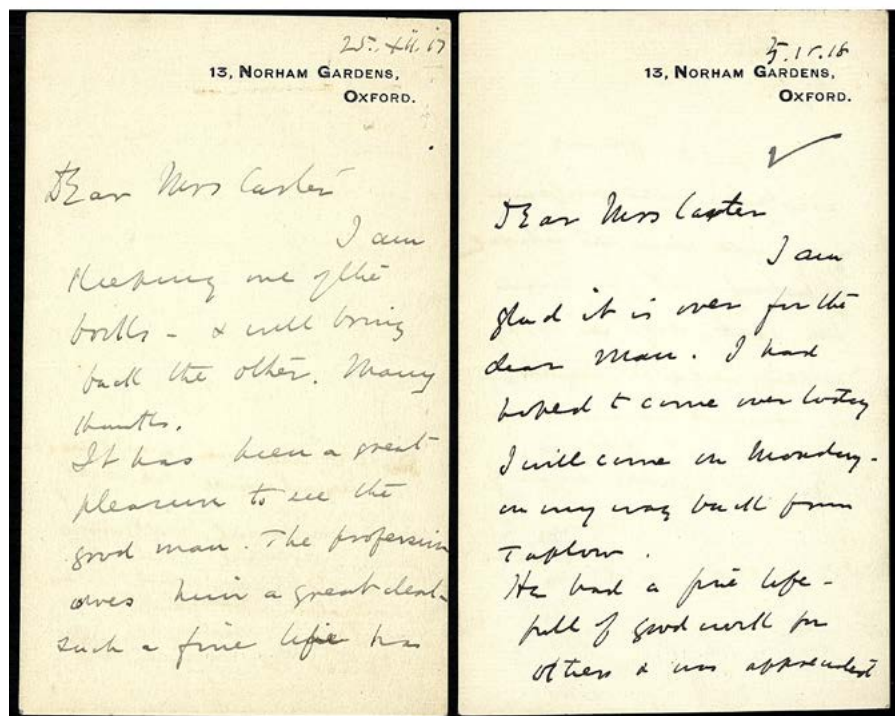 25.XII.17
13, NORHAM GARDENS,
OXFORD.
Dear Mrs Carter
I am
Keeping one of the
books - & will bring
back the other. Many
thanks.
It has been a great
pleasure to see the
good man. The profession
owes him a great deal -
such a fine life has
18
13, NORHAM GARDENS,
OXFORD.
Dear Mrs Carter
I am
glad it is over for the
dear man. I had
hoped to come over today
I will come on Monday -
on my way back from
Taplow.
He had a fine life -
full of good work for
others & was